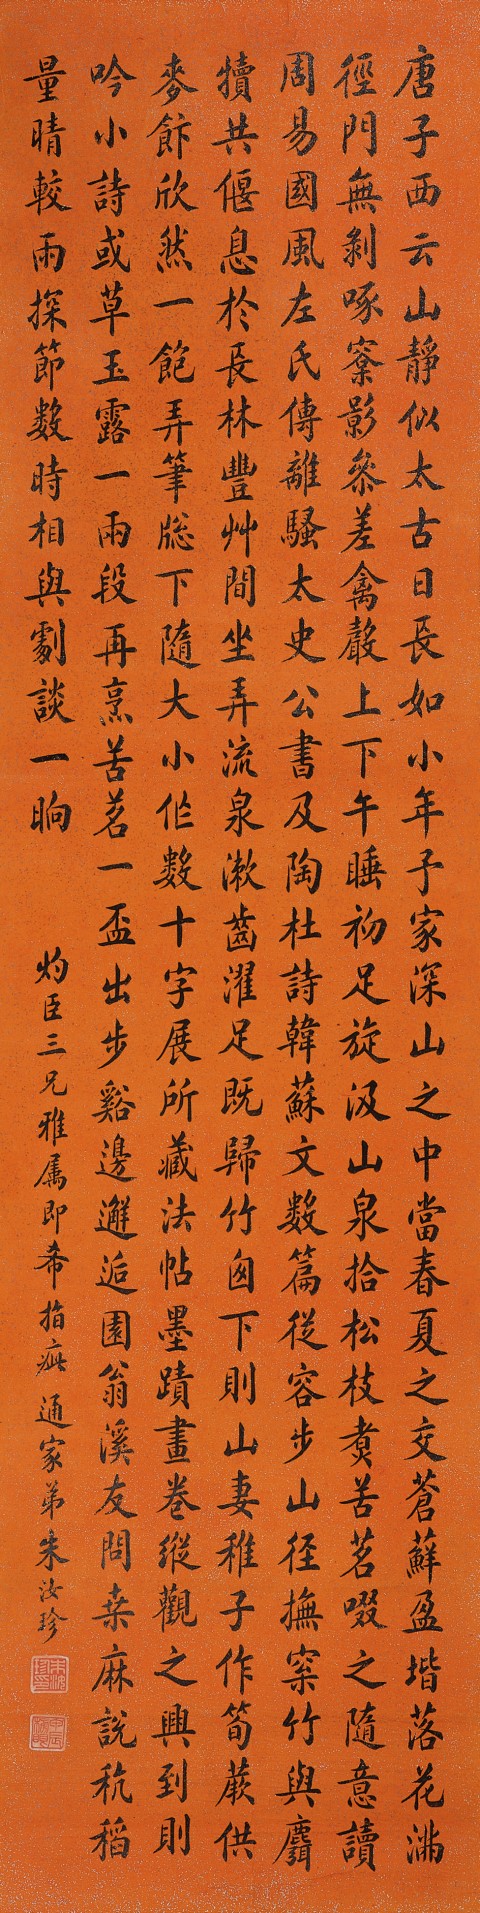 唐子西云山靜似太古日長如小年子家深山之中當春夏之交蒼蘚盈堦落花滿
徑門無剝啄寮影叅差禽聲上下午睡初足旋汲山泉拾松枝煑苦茗啜之隨意讀
周易國風左氏傳離騷太史公書及陶杜詩韓蘇文數篇從容步山径撫案竹與麛
犢共偃息於長林豐艸間坐弄流泉漱齒濯足既歸竹囪下則山妻稚子作筍蕨供
麥飰欣然一飽弄筆牎下隨大小作數十字展所藏法帖墨蹟畫卷縱觀之興到則
吟小詩或草玉露一兩段再烹苦茗一盃出步谿邊邂逅園翁溪友問桒麻說秔稻
量晴較雨探節數時相與劇談一晌
灼臣三兄雅属即希指疵 通家弟朱汝珍